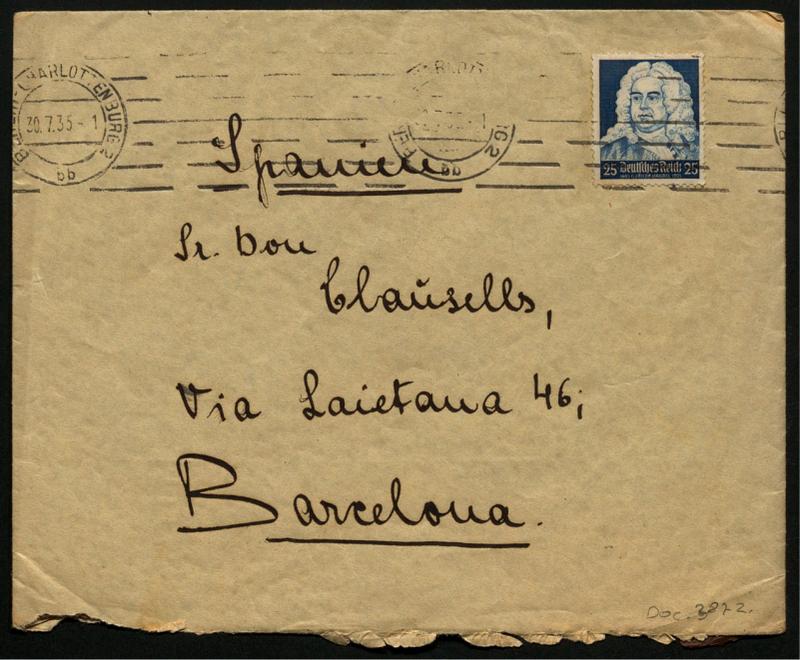 BERLIN-CHARLOTTENBURG 2
30.7.35-1
bb
25 Deutsches Reich 25
Spanien
Sr. Don
Claüsells,
Via Laietana 46;
Barcelona.